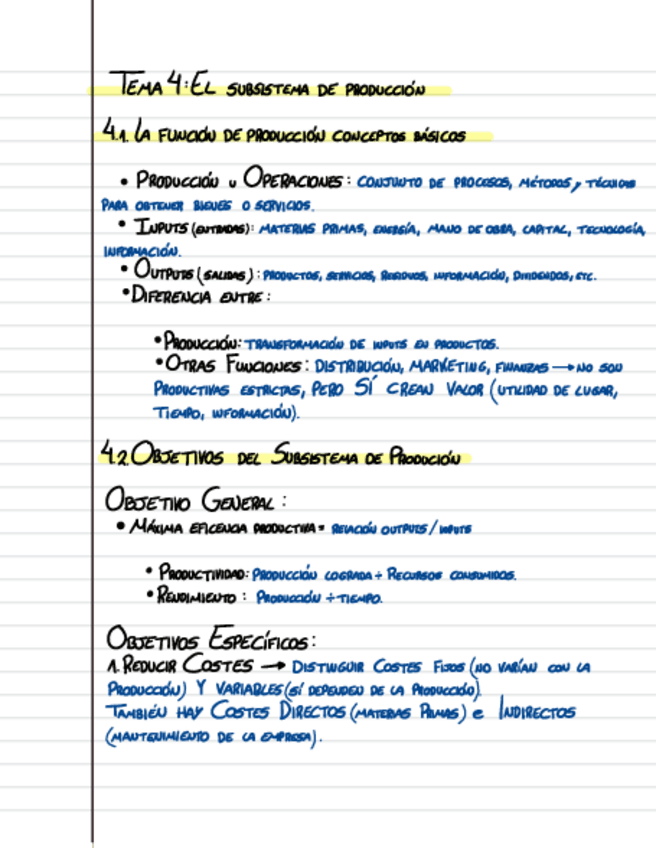 TEMA 4: EL SUBSISTEMA DE PRODUCCIÓN
4.1. LA FUNCIÓN DE PRODUCCIÓN CONCEPTOS BÁSICOS
• PRODUCCIÓN u OPERACIONES: CONJUNTO DE PROCESOS, MÉTODOS y TÉCNICAS
PARA OBTENER BIENES O SERVICIOS.
• INPUTS (ENTRADAS): MATERIAS PRIMAS, ENERGÍA, MANO DE OBRA, CAPITAL, TECNOLOGÍA,
INFORMACIÓN.
• OUTPUTS (SALIDAS): PRODUCTOS, SERVICIOS, RESIDUOS, INFORMACIÓN, DIVIDENDOS, ETC.
• DIFERENCIA ENTRE:
• PRODUCCIÓN: TRANSFORMACIÓN DE INPUTS EN PRODUCTOS.
• OTRAS FUNCIONES: DISTRIBUCIÓN, MARKETING, FINANZAS → NO SON
PRODUCTIVAS ESTRICTAS, PERO SÍ CREAN VALOR (UTILIDAD DE LUGAR,
TIEMPO, INFORMACIÓN).
4.2. OBJETIVOS DEL SUBSISTEMA DE PRODUCIÓN
OBJETIVO GENERAL:
• MÁXIMA EFICENCIA PRODUCTIVA = RELACIÓN OUTPUTS / INPUTS
• PRODUCTIVIDAD: PRODUCCIÓN LOGRADA ÷ RECURSOS CONSUMIDOS.
• RENDIMIENTO: PRODUCCIÓN ÷ TIEMPO.
OBJETIVOS ESPECÍFICOS:
1. REDUCIR COSTES → DISTINGUIR COSTES FIJOS (NO VARÍAN CON LA
PRODUCCIÓN) Y VARIABLES (SÍ DEPENDEN DE LA PRODUCCIÓN).
TAMBIÉN HAY COSTES DIRECTOS (MATERIAS PRIMAS) e INDIRECTOS
(MANTENIMIENTO DE LA EMPRESA).